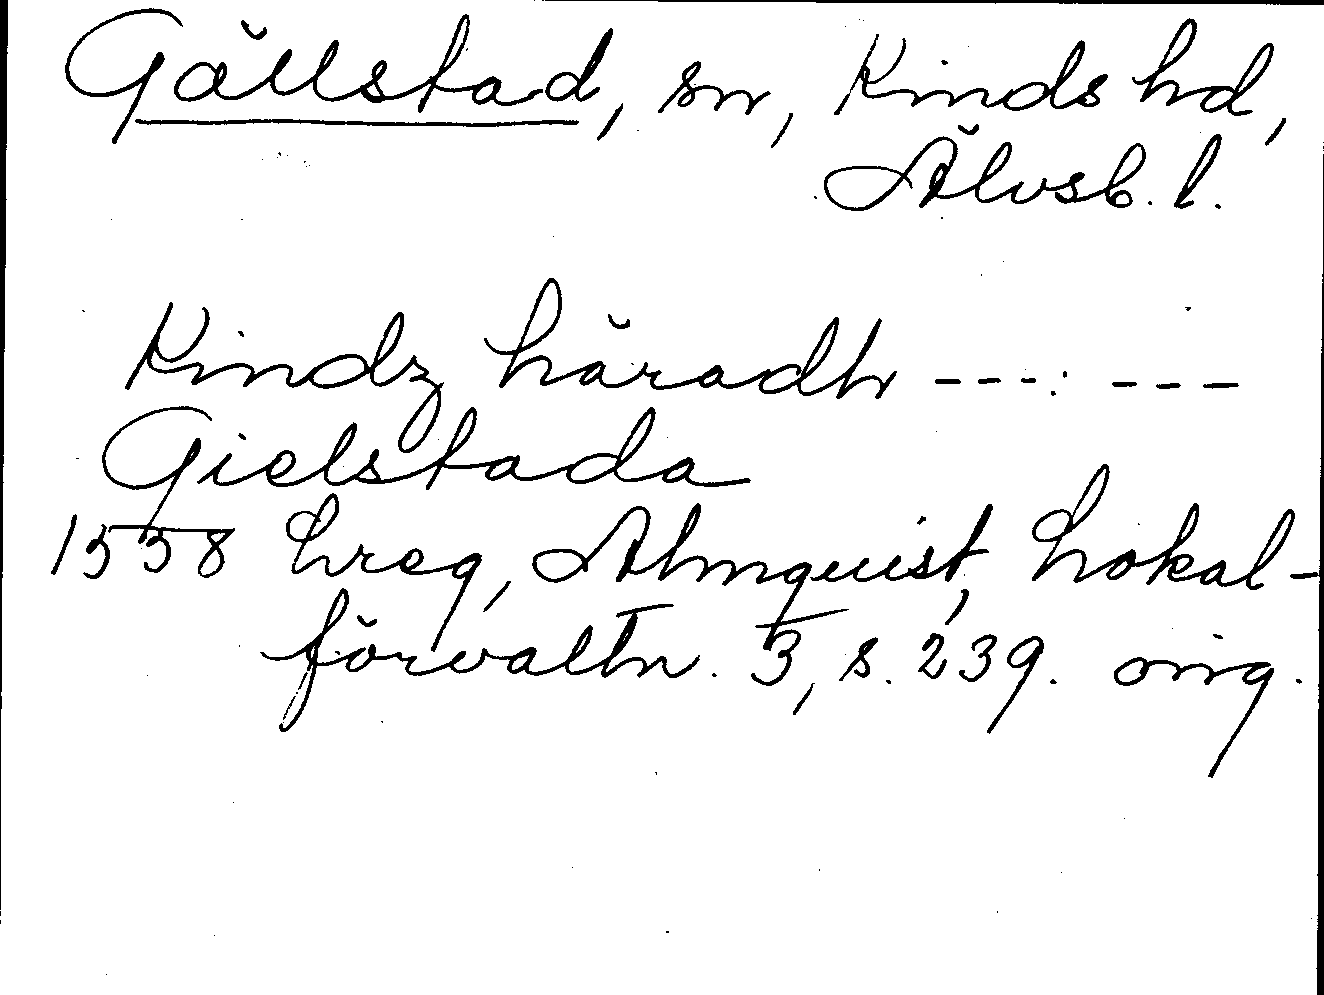 Gällstad, sn, Kinds hd,
Älvsb. l.
Kindz häradh ---: ---
Gielstada
1558 hreg, Almquist, Lokal-
förvaltn. 3, s. 239. orig.